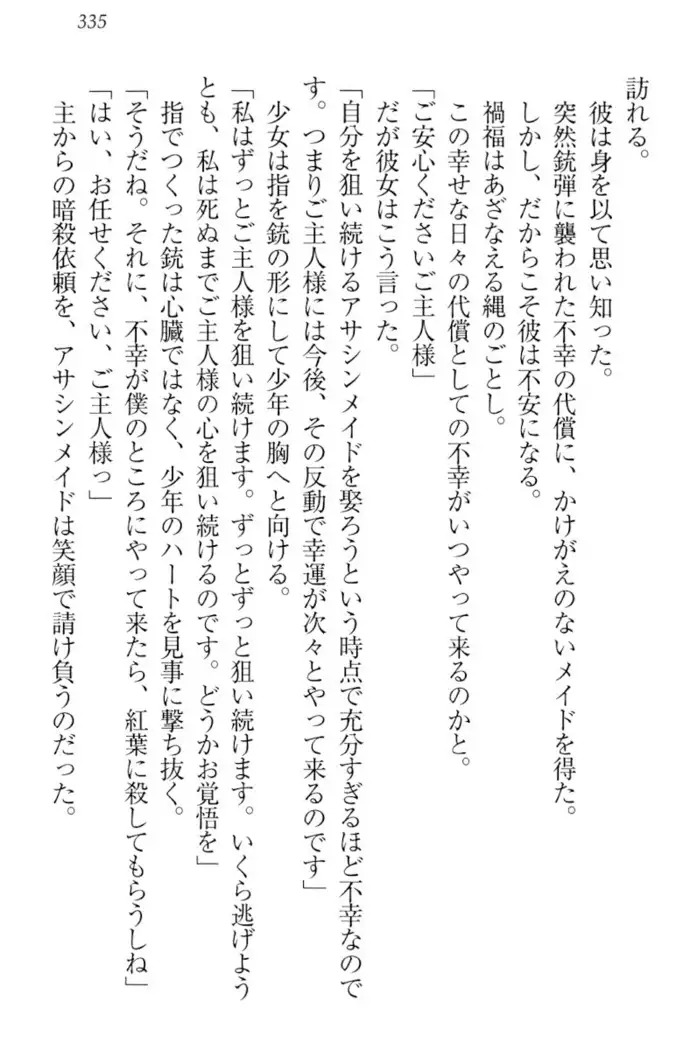 335
訪れる。
彼は身を以て思い知った。
突然銃弾に襲われた不幸の代償に、かけがえのないメイドを得た。
しかし、だからこそ彼は不安になる。
禍福はあざなえる縄のごとし。
この幸せな日々の代償としての不幸がいつやって来るのかと。
「ご安心くださいご主人様」
だが彼女はこう言った。
「自分を狙い続けるアサシンメイドを娶ろうという時点で充分すぎるほど不幸なので
す。つまりご主人様には今後、その反動で幸運が次々とやって来るのです」
少女は指を銃の形にして少年の胸へと向ける。
「私はずっとご主人様を狙い続けます。ずっとずっと狙い続けます。いくら逃げよう
とも、私は死ぬまでご主人様の心を狙い続けるのです。どうかお覚悟を」
指でつくった銃は心臓ではなく、少年のハートを見事に撃ち抜く。
「そうだね。それに、不幸が僕のところにやって来たら、紅葉に殺してもらうしね」
「はい、お任せください、ご主人様っ」
主からの暗殺依頼を、アサシンメイドは笑顔で請け負うのだった。